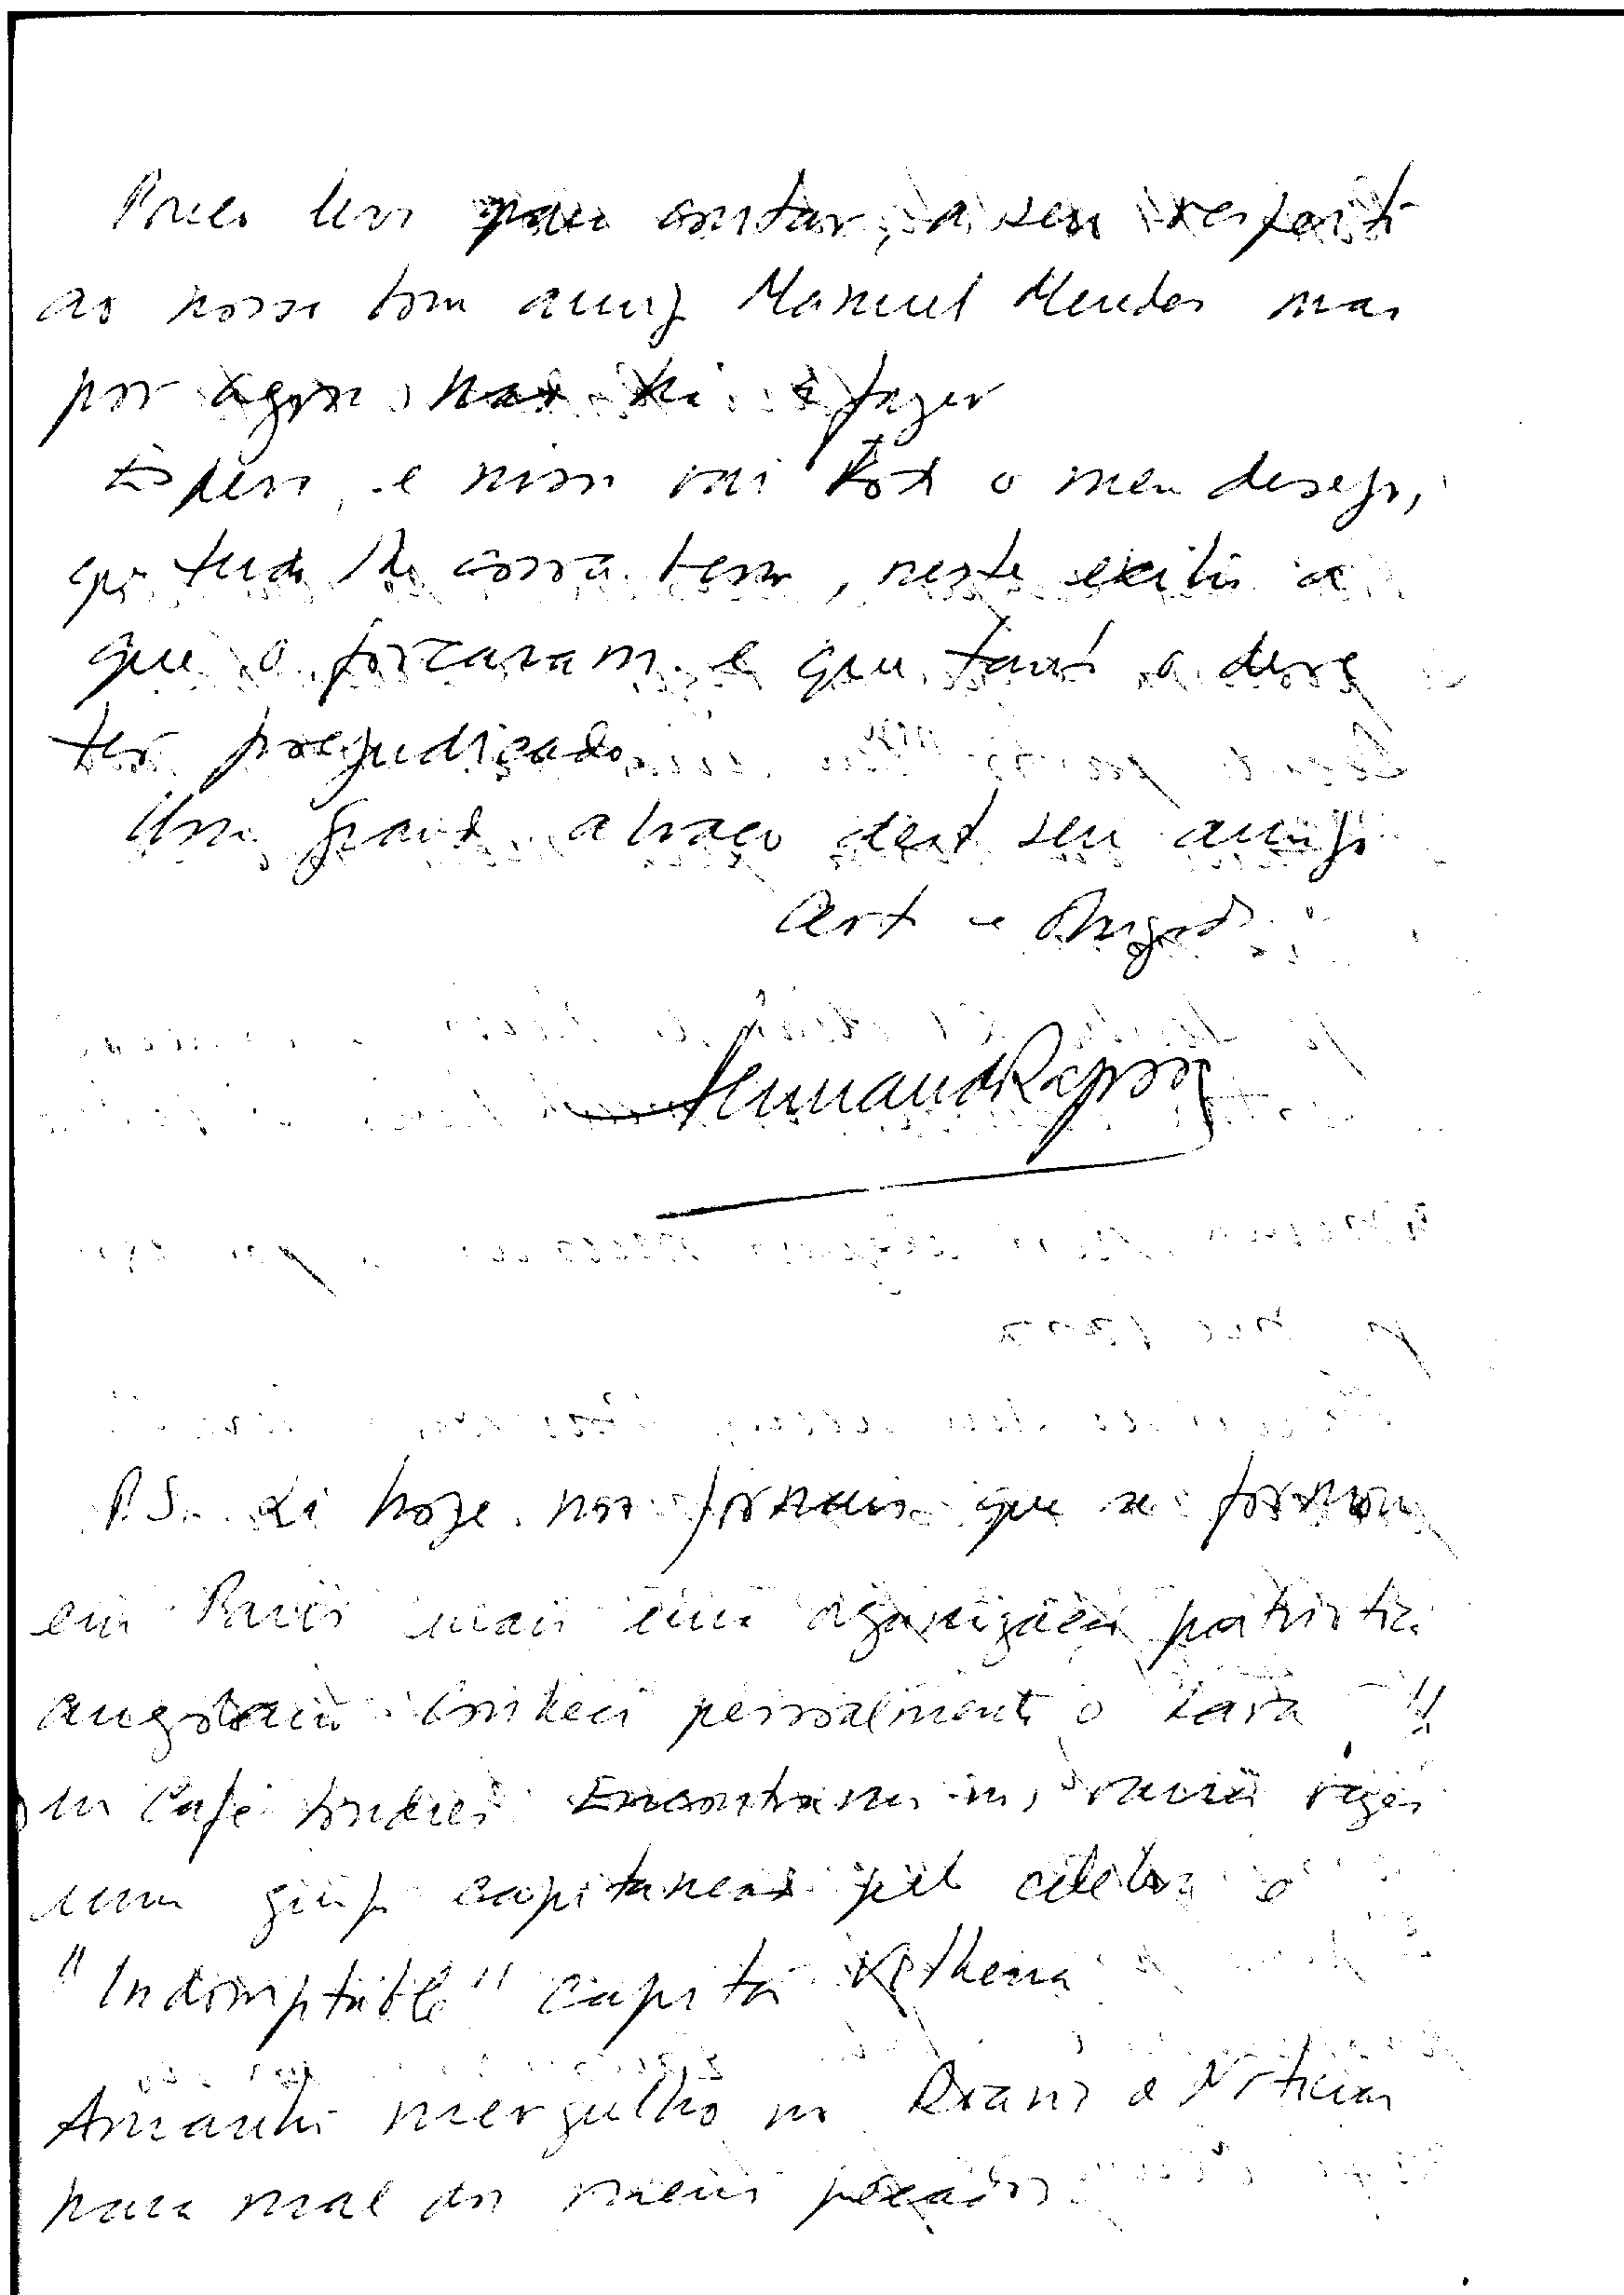 Pouco teve para contar, a seu respeito
ao nosso bom amigo Manuel Mendes mas
por agora nada há a fazer
Espero, e nisso vai todo o meu desejo,
que tudo lhe corra bem, neste exílio a
que o forçaram e que tanto o deve
ter prejudicado
Um grande abraço deste seu amigo
Certo e Obrigado
P.S. Li hoje nos jornais que se formou
em Paris mais uma organização patriótica
angolana Conheci pessoalmente o Lara !!
no Café Encontramo-nos várias vezes
num grupo capitaneado pelo célebre e
"Indomptable" capitão
Amanhã mergulho no Diario de Noticias
para mal dos meus pecados